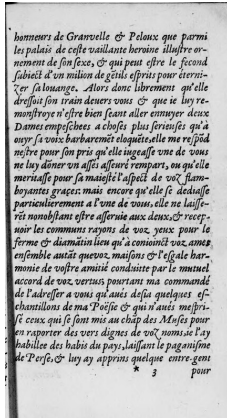 honneurs de Granvelle & Peloux que parmi
les palais de ceste vaillante heroine illustre or-
nement de son sexe, & qui peut estre le second
subiect d'vn milion de gẽtils esprits pour éterni-
zer sa louange. Alors donc librement qu'elle
dressoit son train deuers vous & que ie luy re-
monstroye n'estre bien seant aller ennuyer deux
Dames empeschees a choses plus serieuses qu'a
ouyr sa voix barbaremẽt eloquẽte, elle me respõd
nestre pour son pris qu'elle iugeasse vne de vous
ne luy dõner vn assés asseuré rempart, ou qu'elle
meritasse pour sa maiesté l'aspect de voz flam-
boyantes graces: mais encore qu'elle se dediasse
particulierement a l'vne de vous, elle ne laisse-
rẽt nonobstant estre asseruie aux deux, & recep-
uoir les communs rayons de voz yeux pour le
ferme & diamãtin lieu qu'a conioinct voz ames
ensẽble autãt que voz maisons & l'esgale har-
monie de vostre amitié conduitte par le mutuel
accord de voz vertus, pourtant ma commandé
de l'adresser a vous qu'aués desia quelques es-
chantillons de ma Poësie & qui n'aués mespri-
sé ceux qui se sont mis au chãp des Muses pour
en raporter des vers dignes de voz noms, ie l'ay
habillee des habis du pays, laissant le paganisme
de Perse, & luy ay apprins quelque entre-gent
* 3 pour